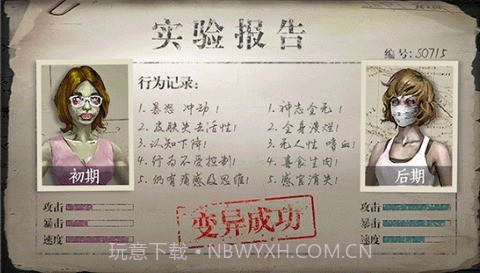 实验报告
编号:S0715
行为记录:
1.暴怒 冲动!
2.皮肤失去活性!
3.认知下降!
4.行为不受控制!
5.仍有痛感及思维!
1.神志全无!
2.全身溃烂!
3.无人性 嗜血!
4.喜食生肉!
5.感官消失!
初期
后期
攻击
暴击
速度
变异成功
攻击
暴击
速度
玩意下载·NBWYXH.COM.CN